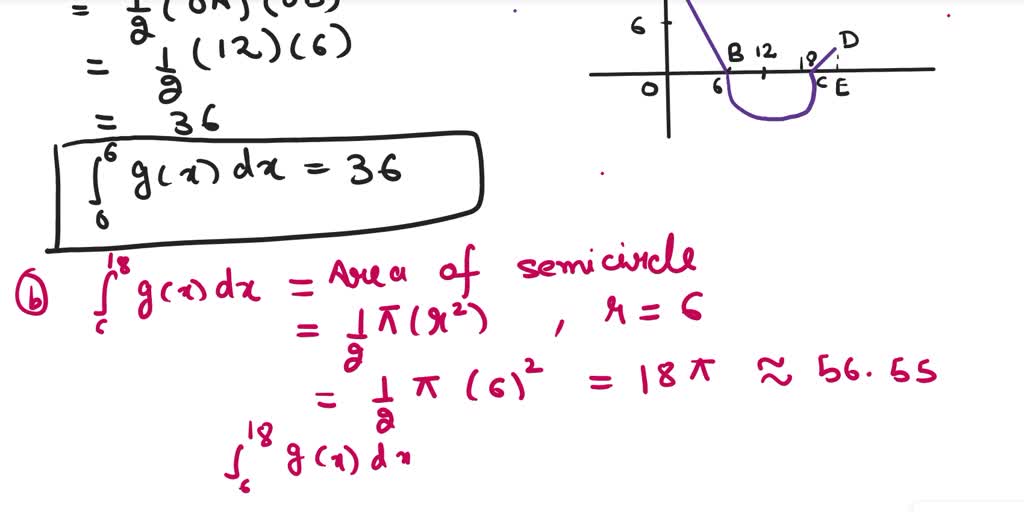 = 1/2 (OA) (OB)
= 1/2 (12) (6)
= 36
∫₀⁶ g(x) dx = 36
6
B 12 18 D
O 6 C E
(b) ∫₆¹⁸ g(x) dx = Area of semicircle
= 1/2 π(r²) , r = 6
= 1/2 π (6)² = 18π ≈ 56.55
∫₆¹⁸ g(x) dx